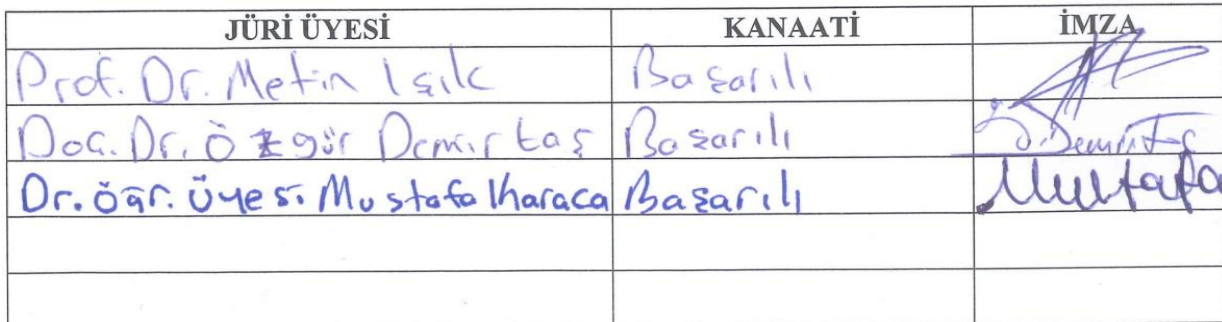 JÜRİ ÜYESİ KANAATİ İMZA
Prof. Dr. Metin Işık Başarılı
Doç. Dr. Özgür Demirtaş Başarılı Ö. Demirtaş
Dr. Öğr. Üyesi Mustafa Karaca Başarılı Mustafa